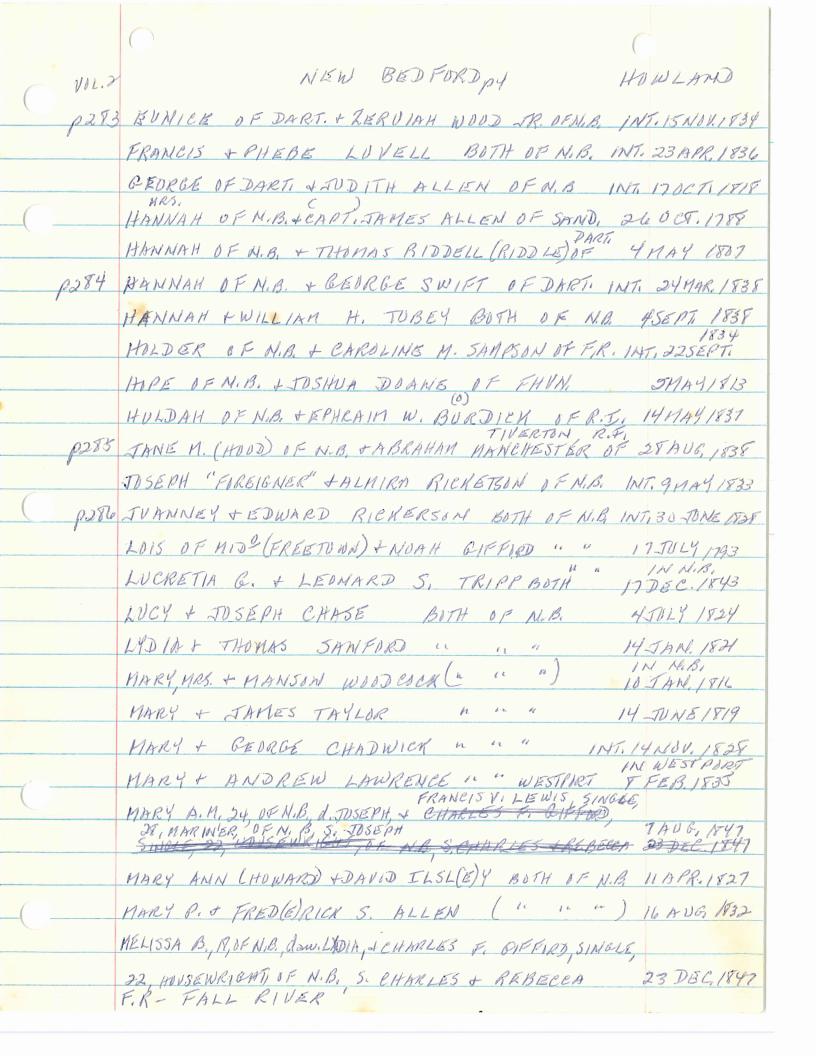 VOL. 2 NEW BEDFORD p4 HOWLAND
p283 EUNICE OF DART. & ZERUIAH WOOD JR. OF N.B. INT. 15 NOV. 1834
FRANCIS & PHEBE LOVELL BOTH OF N.B. INT. 23 APR. 1836
GEORGE OF DART. & JUDITH ALLEN OF N.B INT. 17 OCT. 1818
MRS. ( )
HANNAH OF N.B. & CAPT. JAMES ALLEN OF SAND. 26 OCT. 1788
DART.
HANNAH OF N.B. & THOMAS RIDDELL (RIDDLE) OF 4 MAY 1807
p284 HANNAH OF N.B. & GEORGE SWIFT OF DART. INT. 24 MAR. 1838
HANNAH & WILLIAM H. TOBEY BOTH OF N.B. 4 SEPT. 1838
1834
HOLDER OF N.B. & CAROLINE M. SAMPSON OF F.R. INT. 22 SEPT.
HOPE OF N.B. & JOSHUA DOANE OF FHVN. 5 MAY 1813
(O)
HULDAH OF N.B. & EPHRAIM W. BURDICK OF R.I. 14 MAY 1837
TIVERTON R.I.
p285 JANE M. (HOOD) OF N.B. & ABRAHAM MANCHESTER OF 28 AUG. 1838
JOSEPH "FOREIGNER" & ALMIRA RICKETSON OF N.B. INT. 9 MAY 1833
p286 JUANNEY & EDWARD RICKERSON BOTH OF N.B. INT. 30 JUNE 1828
LOIS OF MIDO (FREETOWN) & NOAH GIFFORD " " 17 JULY 1793
" " IN N.B.
LUCRETIA G. & LEONARD S. TRIPP BOTH 17 DEC. 1843
LUCY & JOSEPH CHASE BOTH OF N.B. 4 JULY 1824
LYDIA & THOMAS SANFORD " " " 14 JAN. 1821
IN N.B.
MARY, MRS. & MANSON WOODCOCK (" " ") 10 JAN. 1816
MARY & JAMES TAYLOR " " " 14 JUNE 1819
MARY & GEORGE CHADWICK " " " INT. 14 NOV. 1828
IN WESTPORT
MARY & ANDREW LAWRENCE " " WESTPORT 8 FEB. 1835
FRANCIS V. LEWIS, SINGLE,
MARY A.M. 24, OF N.B, d. JOSEPH, & CHARLES F. GIFFORD,
28, MARINER, OF N.B, S. JOSEPH 7 AUG, 1847
SINGLE, 22, HOUSEWRIGHT, OF N.B, S. CHARLES & REBECCA 23 DEC. 1847
MARY ANN (HOWARD) & DAVID ILSL(E)Y BOTH OF N.B. 11 APR. 1827
MARY P. & FRED(E)RICK S. ALLEN (" " ") 16 AUG. 1832
MELISSA B., OF N.B., LYDIA, & CHARLES F. GIFFORD, SINGLE,
22, HOUSEWRIGHT, OF N.B., S. CHARLES & REBECCA 23 DEC, 1847
F.R - FALL RIVER